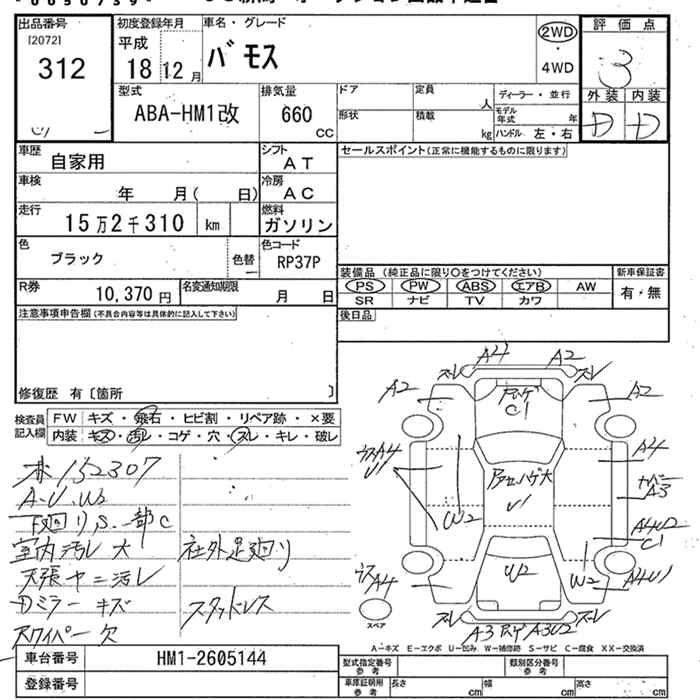 出品番号
[2072]
312
初度登録年月
平成
18 12月
車名・グレード
バモス
2WD
・
4WD
評価点
3
外装 内装
D D
型式
ABA-HM1改
排気量
660
CC
ドア
定員
人
形状
積載
kg
ディーラー・並行
モデル年式 年
ハンドル 左・右
車歴
自家用
シフト
AT
セールスポイント(正常に機能するものに限ります)
車検
年 月( 日)
冷房
AC
走行
15万2千310 km
燃料
ガソリン
色
ブラック
色替
色コード
RP37P
装備品 (純正品に限り○をつけてください)
PS PW ABS エアB AW
SR ナビ TV カワ
新車保証書
有・無
R券
10,370円
名変通知期限
月 日
後日品
注意事項申告欄(不具合内容等は具体的に記入して下さい)
修復歴 有〔箇所 〕
検査員記入欄
FW キズ・飛石・ヒビ割・リペア跡・×要
内装 キズ・汚レ・コゲ・穴・スレ・キレ・破レ
152307
A-U.W2
下廻りS.一部C
室内汚レ大
社外足廻り
天張ヤニ汚レ
Dミラーキズ
スタッドレス
Rワイパー欠
ズレ A4 A2 ズレ
A2
A2
C1
A4
U1
A4
A3
U1
W2
A4U2
C1
W2
W2
A4
A4U1
スペア
ズレ
ズレ
A3
A3U2
A-キズ E-エクボ U-凹み W-補修跡 S-サビ C-腐食 XX-交換済
車台番号
HM1-2605144
登録番号
型式指定番号
参考
類別区分番号
参考
車庫証明用
参考
長さ cm
幅 cm
高さ cm